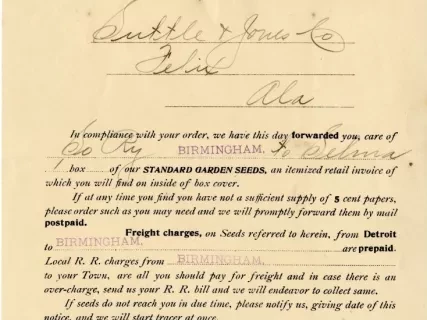 Suttle & Jones Co
Felix
Ala
In compliance with your order, we have this day forwarded you, care of
So Ry BIRMINGHAM. to Selma
box of our STANDARD GARDEN SEEDS, an itemized retail invoice of
which you will find on inside of box cover.
If at any time you find you have not a sufficient supply of 5 cent papers,
please order such as you may need and we will promptly forward them by mail
postpaid.
Freight charges, on Seeds referred to herein, from Detroit
to BIRMINGHAM. are prepaid.
Local R. R. charges from BIRMINGHAM.
to your Town, are all you should pay for freight and in case there is an
over-charge, send us your R. R. bill and we will endeavor to collect same.
If seeds do not reach you in due time, please notify us, giving date of this
notice, and we will start tracer at once.